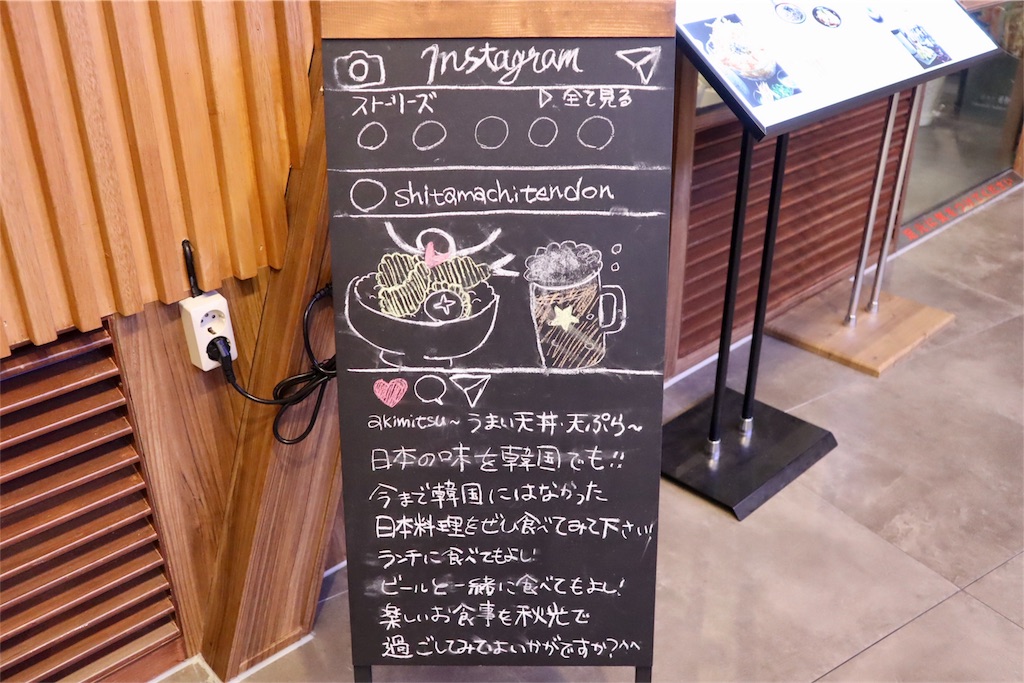 Instagram
ストーリーズ ▷ 全て見る
shitamachitendon
akimitsu~ うまい天丼・天ぷら~
日本の味を韓国でも!!
今まで韓国にはなかった
日本料理をぜひ食べてみて下さい!
ランチに食べてもよし!
ビールと一緒に食べてもよし!
楽しいお食事を秋光で
過ごしてみてはいかがですか?^^